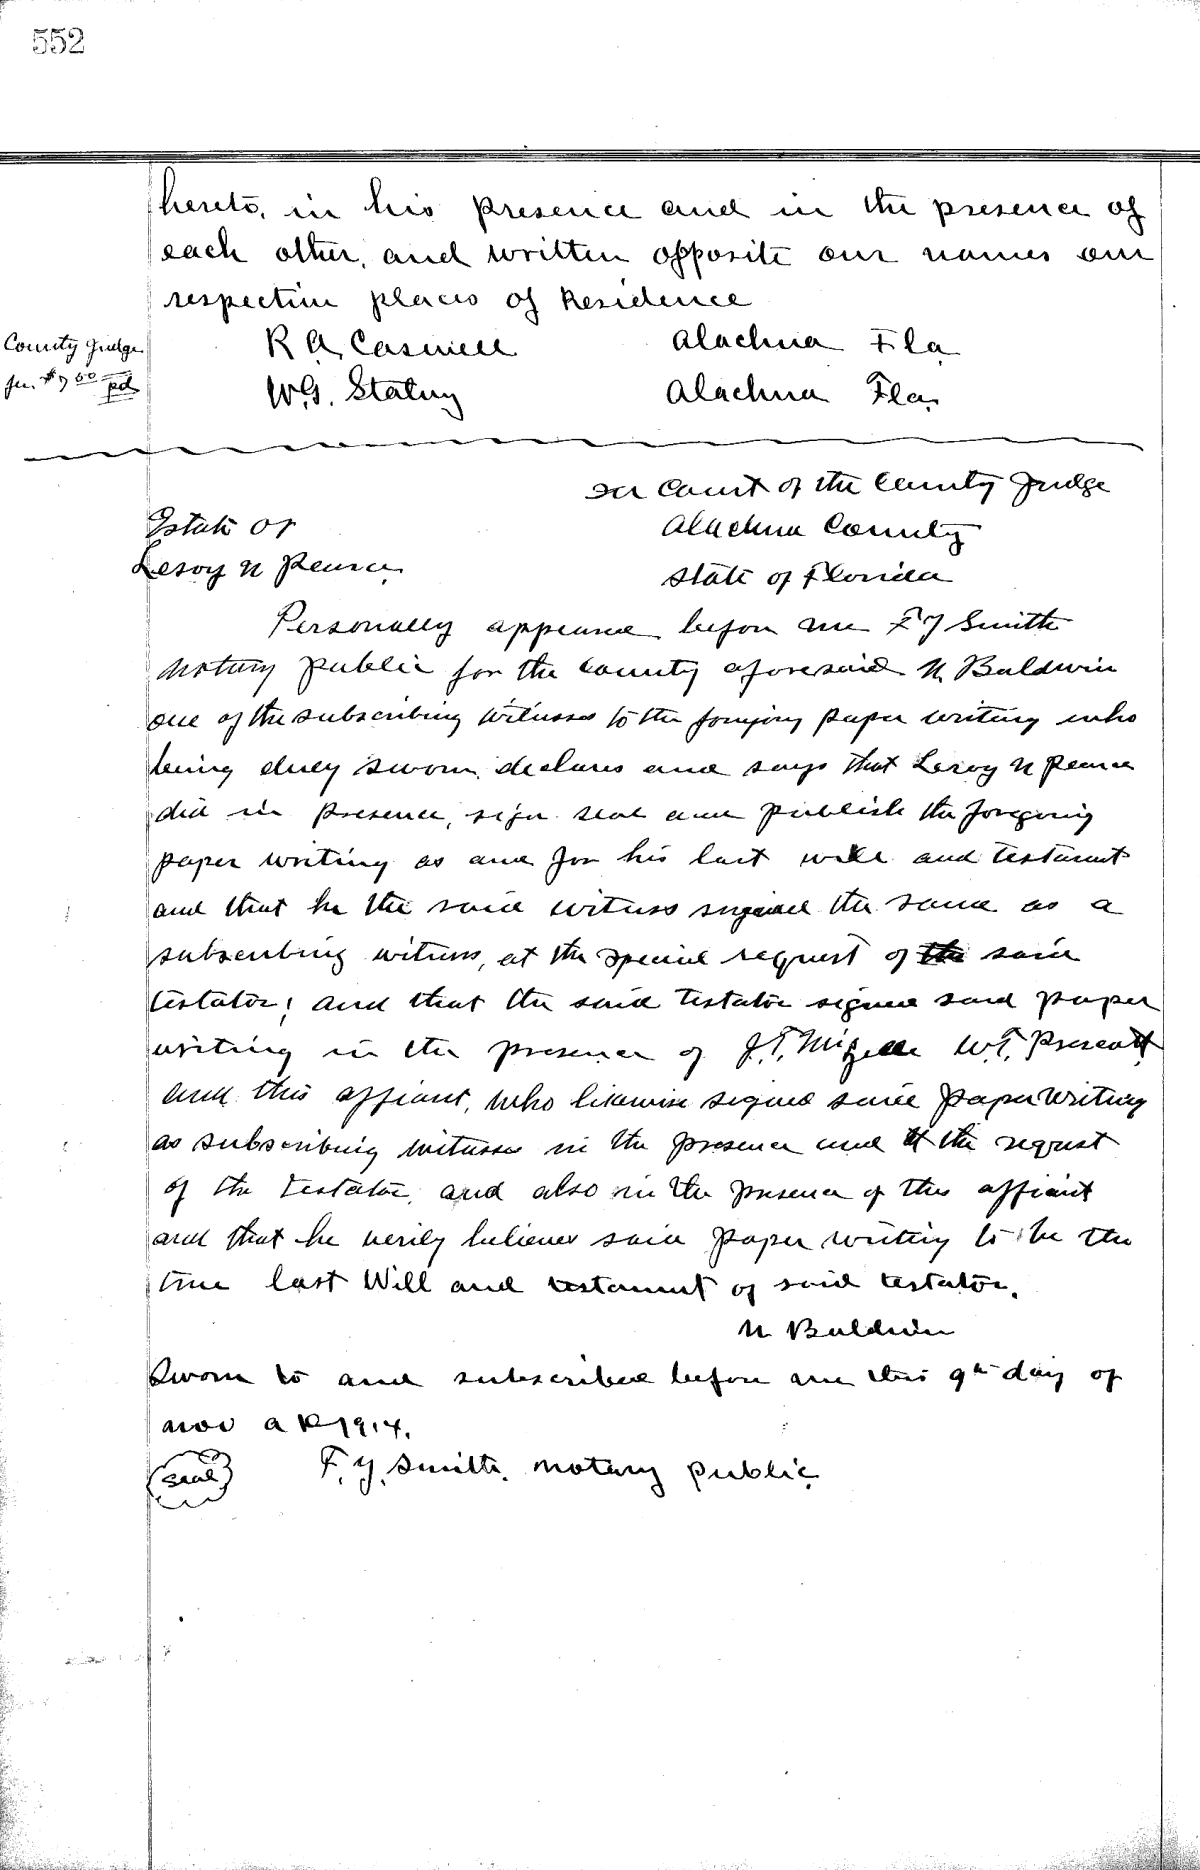 552
hereto, in his presence and in the presence of
each other, and written opposite our names our
respective places of Residence
County Judge
fee $7 50 pd
R A. Caswell Alachua Fla
W.G. Alachua Fla.
In Court of the County Judge
Estate of Alachua County
Leroy N Pearce State of Florida
Personally appeared before me F Y Smith
Notary Public for the County aforesaid N. Baldwin
one of the subscribing witnesses to the forgoing paper writing who
being duly sworn, declares and says that Leroy N Pearce
did in presence, sign seal and publish the forgoing
paper writing as and for his last will and testament
and that he the said witness signed the same as a
subscribing witness, at the special request of the said
testator; and that the said testator signed said paper
writing in the presence of J.T. Mizelle W.T. Prescott
and this affiant, who likewise signed said paper writing
as subscribing witnesses in the presence and at the request
of the testator, and also in the presence of this affiant
and that he verily believes said paper writing to be the
true last Will and testament of said testator.
N. Baldwin
Sworn to and subscribed before me this 9th day of
Nov A D 1914.
(seal) F. Y. Smith. Notary public.